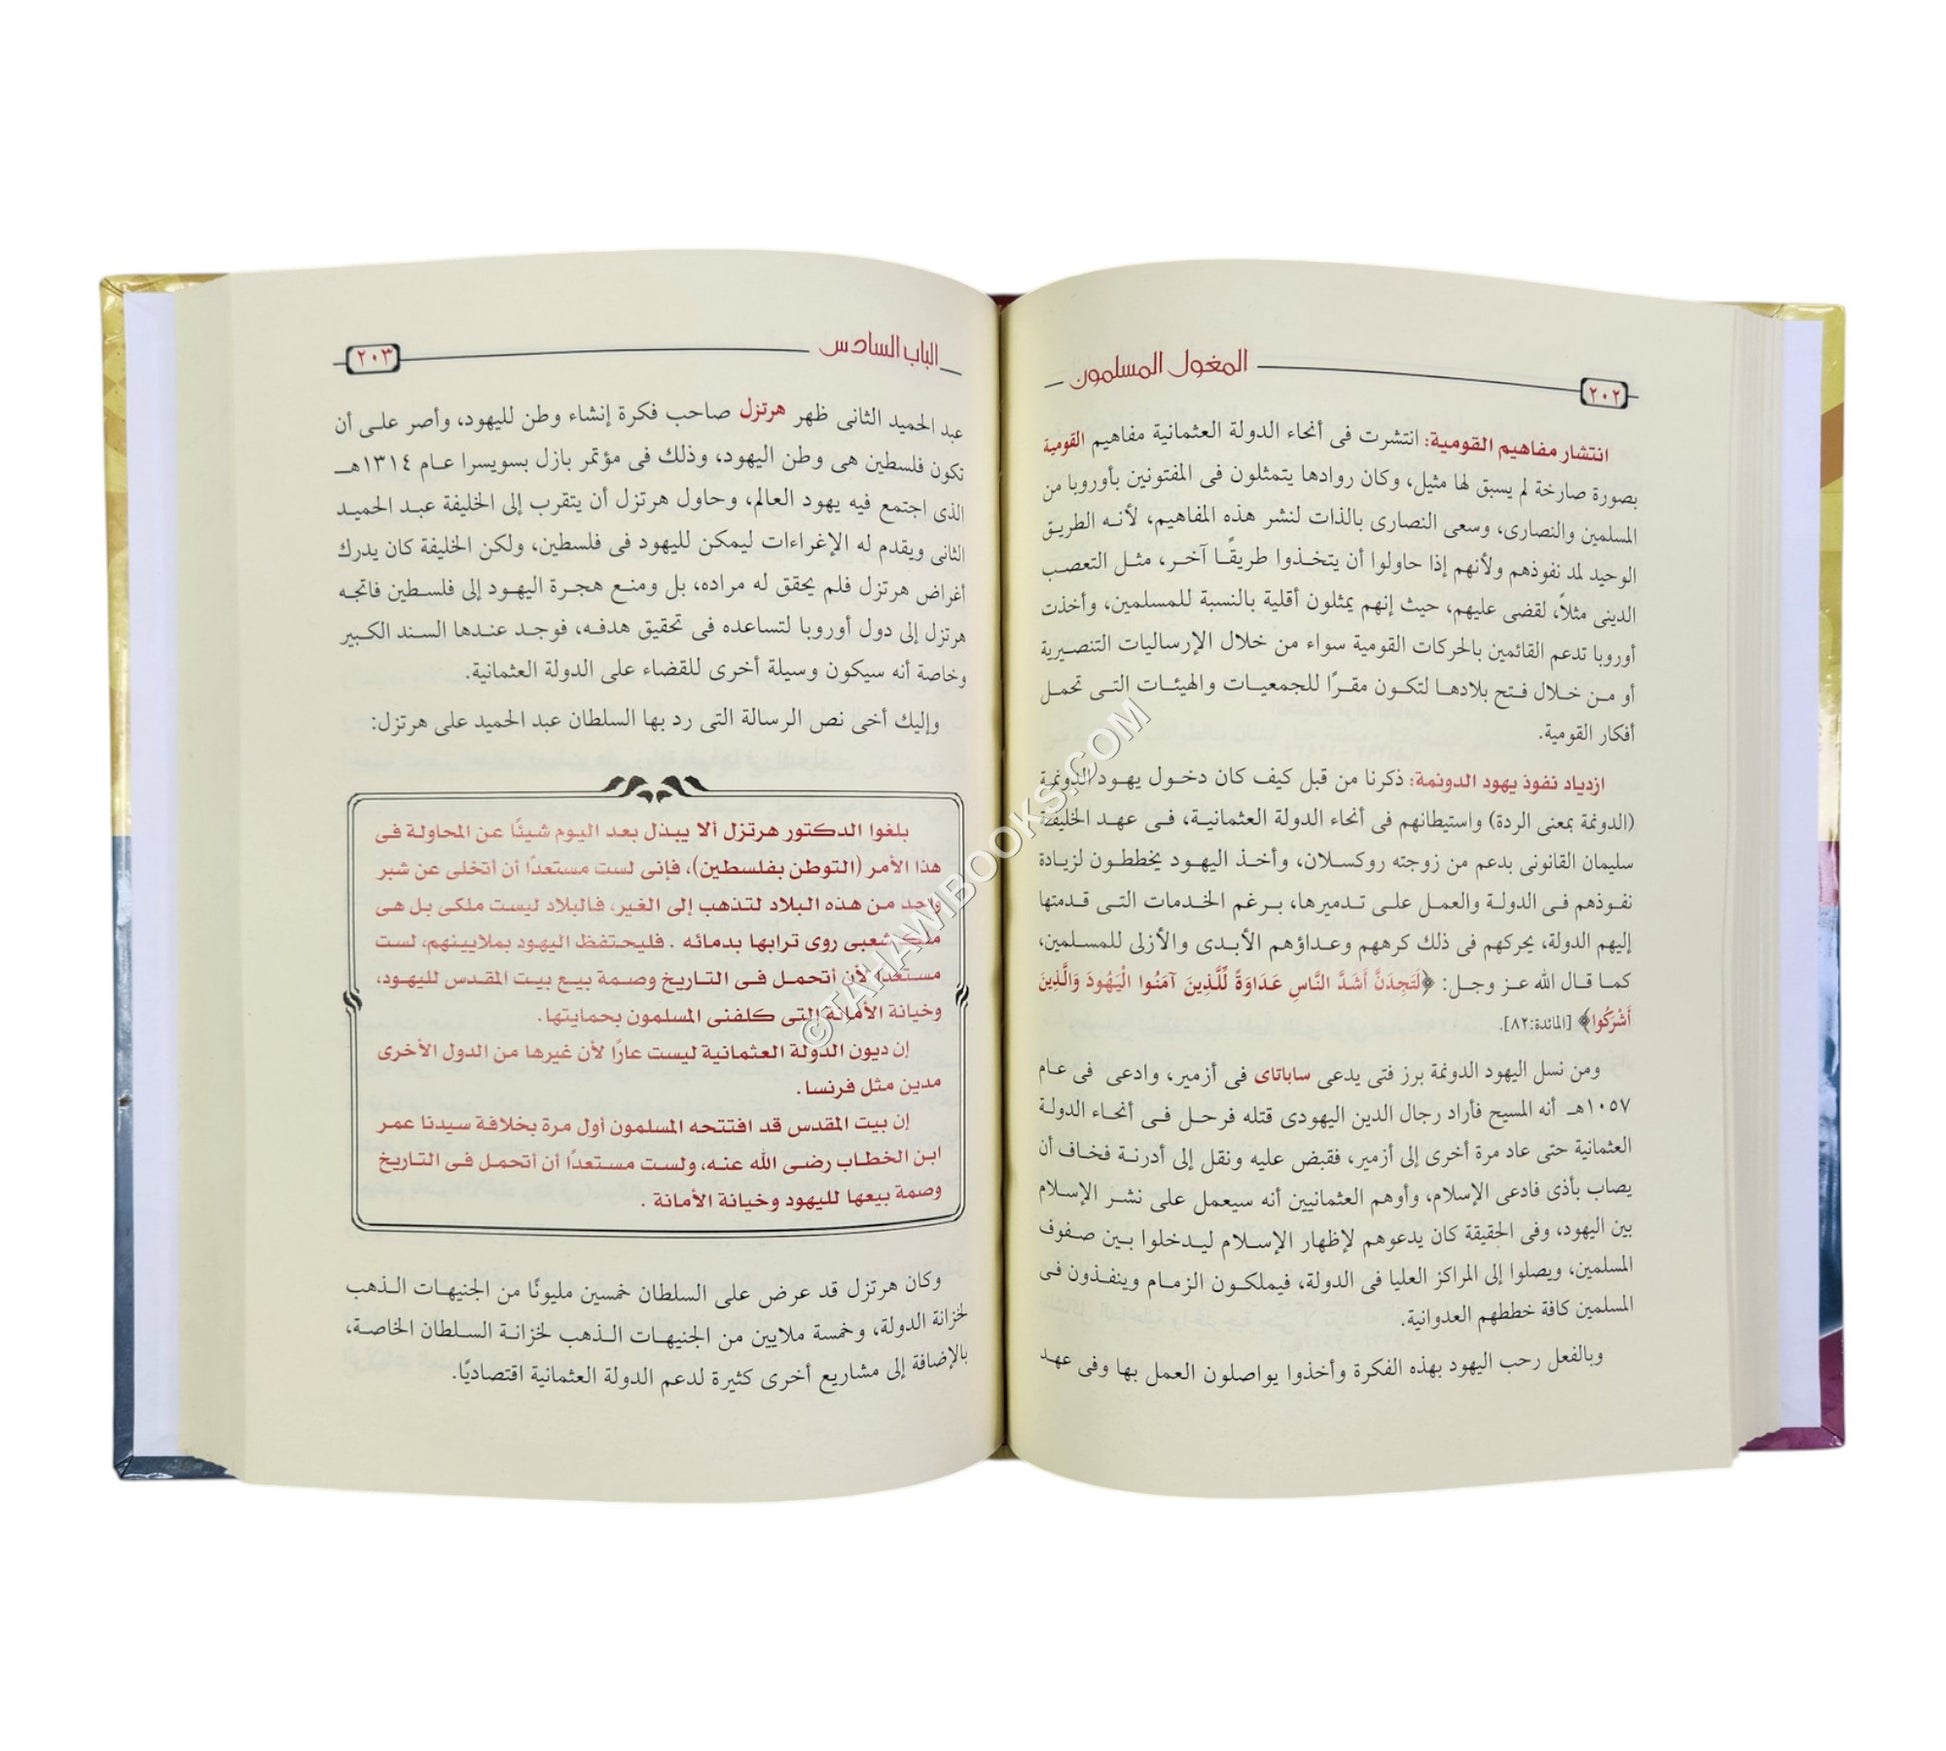 ٢٠٢ المغول المسلمون
انتشار مفاهيم القومية: انتشرت فى أنحاء الدولة العثمانية مفاهيم القومية
بصورة صارخة لم يسبق لها مثيل، وكان روادها يتمثلون فى المفتونين بأوروبا من
المسلمين والنصارى، وسعى النصارى بالذات لنشر هذه المفاهيم، لأنه الطريق
الوحيد لمد نفوذهم ولأنهم إذا حاولوا أن يتخذوا طريقًا آخر، مثل التعصب
الدينى مثلاً، لقضى عليهم، حيث إنهم يمثلون أقلية بالنسبة للمسلمين، وأخذت
أوروبا تدعم القائمين بالحركات القومية سواء من خلال الإرساليات التنصيرية
أو من خلال فتح بلادها لتكون مقرًا للجمعيات والهيئات التى تحمل
أفكار القومية.
ازدياد نفوذ يهود الدونمة: ذكرنا من قبل كيف كان دخول يهود الدونمة
(الدونمة بمعنى الردة) واستيطانهم فى أنحاء الدولة العثمانية، فى عهد الخليفة
سليمان القانونى بدعم من زوجته روكسلان، وأخذ اليهود يخططون لزيادة
نفوذهم فى الدولة والعمل على تدميرها، برغم الخدمات التى قدمتها
إليهم الدولة، يحركهم فى ذلك كرههم وعداؤهم الأبدى والأزلى للمسلمين،
كما قال الله عز وجل: ﴿لَتَجِدَنَّ أَشَدَّ النَّاسِ عَدَاوَةً لِّلَّذِينَ آمَنُوا الْيَهُودَ وَالَّذِينَ
أَشْرَكُوا﴾ [المائدة:٨٢].
ومن نسل اليهود الدونمة برز فتى يدعى ساباتاى فى أزمير، وادعى فى عام
١٠٥٧هـ أنه المسيح فأراد رجال الدين اليهودى قتله فرحل فى أنحاء الدولة
العثمانية حتى عاد مرة أخرى إلى أزمير، فقبض عليه ونقل إلى أدرنة فخاف أن
يصاب بأذى فادعى الإسلام، وأوهم العثمانيين أنه سيعمل على نشر الإسلام
بين اليهود، وفى الحقيقة كان يدعوهم لإظهار الإسلام ليدخلوا بين صفوف
المسلمين، ويصلوا إلى المراكز العليا فى الدولة، فيملكون الزمام وينفذون فى
المسلمين كافة خططهم العدوانية.
وبالفعل رحب اليهود بهذه الفكرة وأخذوا يواصلون العمل بها وفى عهد
الباب السادس ٢٠٣
عبد الحميد الثانى ظهر هرتزل صاحب فكرة إنشاء وطن لليهود، وأصر على أن
تكون فلسطين هى وطن اليهود، وذلك فى مؤتمر بازل بسويسرا عام ١٣١٤هـ
الذى اجتمع فيه يهود العالم، وحاول هرتزل أن يتقرب إلى الخليفة عبد الحميد
الثانى ويقدم له الإغراءات ليمكن لليهود فى فلسطين، ولكن الخليفة كان يدرك
أغراض هرتزل فلم يحقق له مراده، بل ومنع هجرة اليهود إلى فلسطين فاتجه
هرتزل إلى دول أوروبا لتساعده فى تحقيق هدفه، فوجد عندها السند الكبير
وخاصة أنه سيكون وسيلة أخرى للقضاء على الدولة العثمانية.
وإليك أخى نص الرسالة التى رد بها السلطان عبد الحميد على هرتزل:
بلغوا الدكتور هرتزل ألا يبذل بعد اليوم شيئًا عن المحاولة فى
هذا الأمر (التوطن بفلسطين)، فإنى لست مستعدًا أن أتخلى عن شبر
واحد من هذه البلاد لتذهب إلى الغير، فالبلاد ليست ملكى بل هى
ملك شعبى روى ترابها بدمائه . فليحتفظ اليهود بملايينهم، لست
مستعدًا لأن أتحمل فى التاريخ وصمة بيع بيت المقدس لليهود،
وخيانة الأمانة التى كلفنى المسلمون بحمايتها.
إن ديون الدولة العثمانية ليست عارًا لأن غيرها من الدول الأخرى
مدين مثل فرنسا.
إن بيت المقدس قد افتتحه المسلمون أول مرة بخلافة سيدنا عمر
ابن الخطاب رضى الله عنه، ولست مستعدًا أن أتحمل فى التاريخ
وصمة بيعها لليهود وخيانة الأمانة .
وكان هرتزل قد عرض على السلطان خمسين مليونًا من الجنيهات الذهب
لخزانة الدولة، وخمسة ملايين من الجنيهات الذهب لخزانة السلطان الخاصة،
بالإضافة إلى مشاريع أخرى كثيرة لدعم الدولة العثمانية اقتصاديًا.
©TAHAWIBOOKS.COM